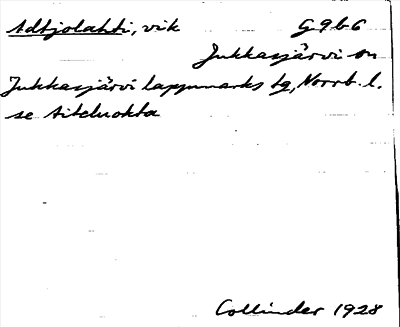 Adtjolahti, vik G9b6
Jukkasjärvi sn
Jukkasjärvi lappmarks tg, Norrb. l.
se Aiteluokta
Collinder 1928